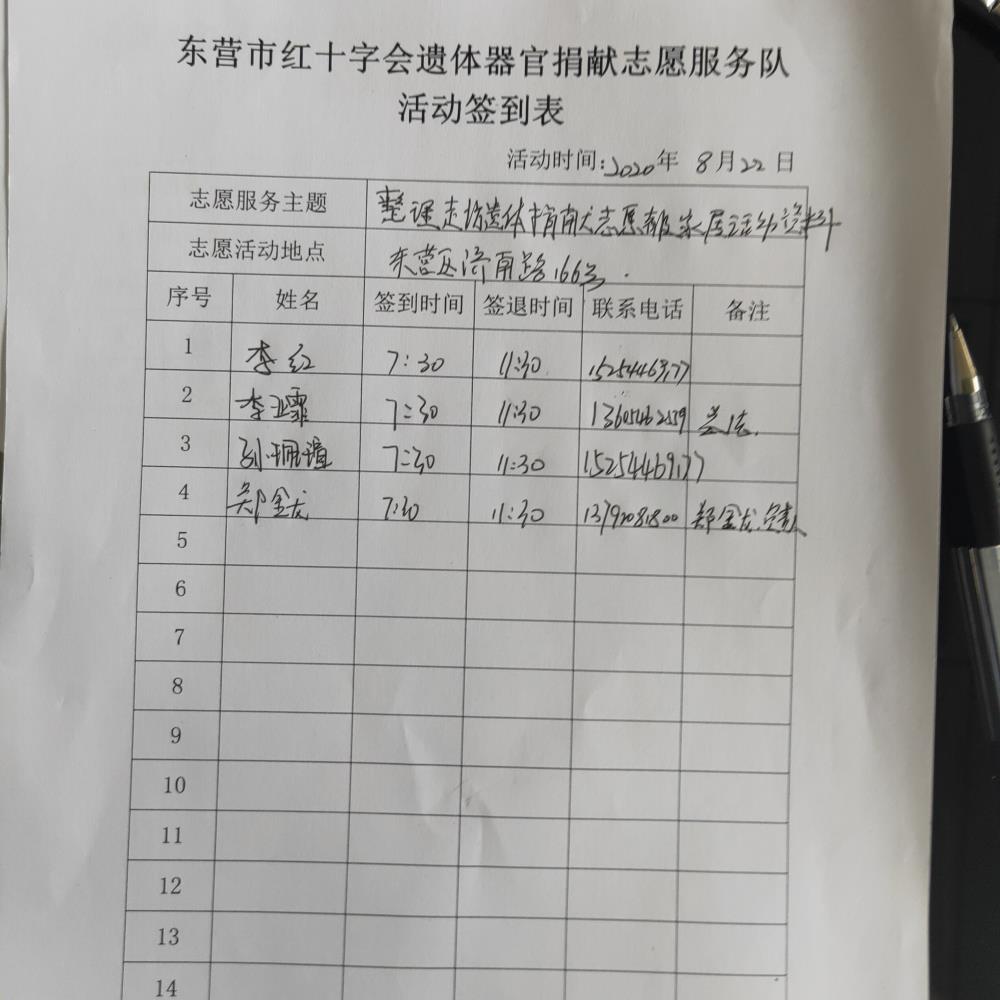 东营市红十字会遗体器官捐献志愿服务队
活动签到表
活动时间:2020年 8月22日
志愿服务主题 整理走访遗体捐献志愿者家属活动资料
志愿活动地点 东营区济南路166号.
序号 姓名 签到时间 签退时间 联系电话 备注
1 李红 7:30 11:30
2 李亚霏 7:30 11:30 13605462559
3 孙珮瑄 7:30 11:30 15254469177
4 郑金龙 7:30 11:30 13792081800 郑金龙
5
6
7
8
9
10
11
12
13
14